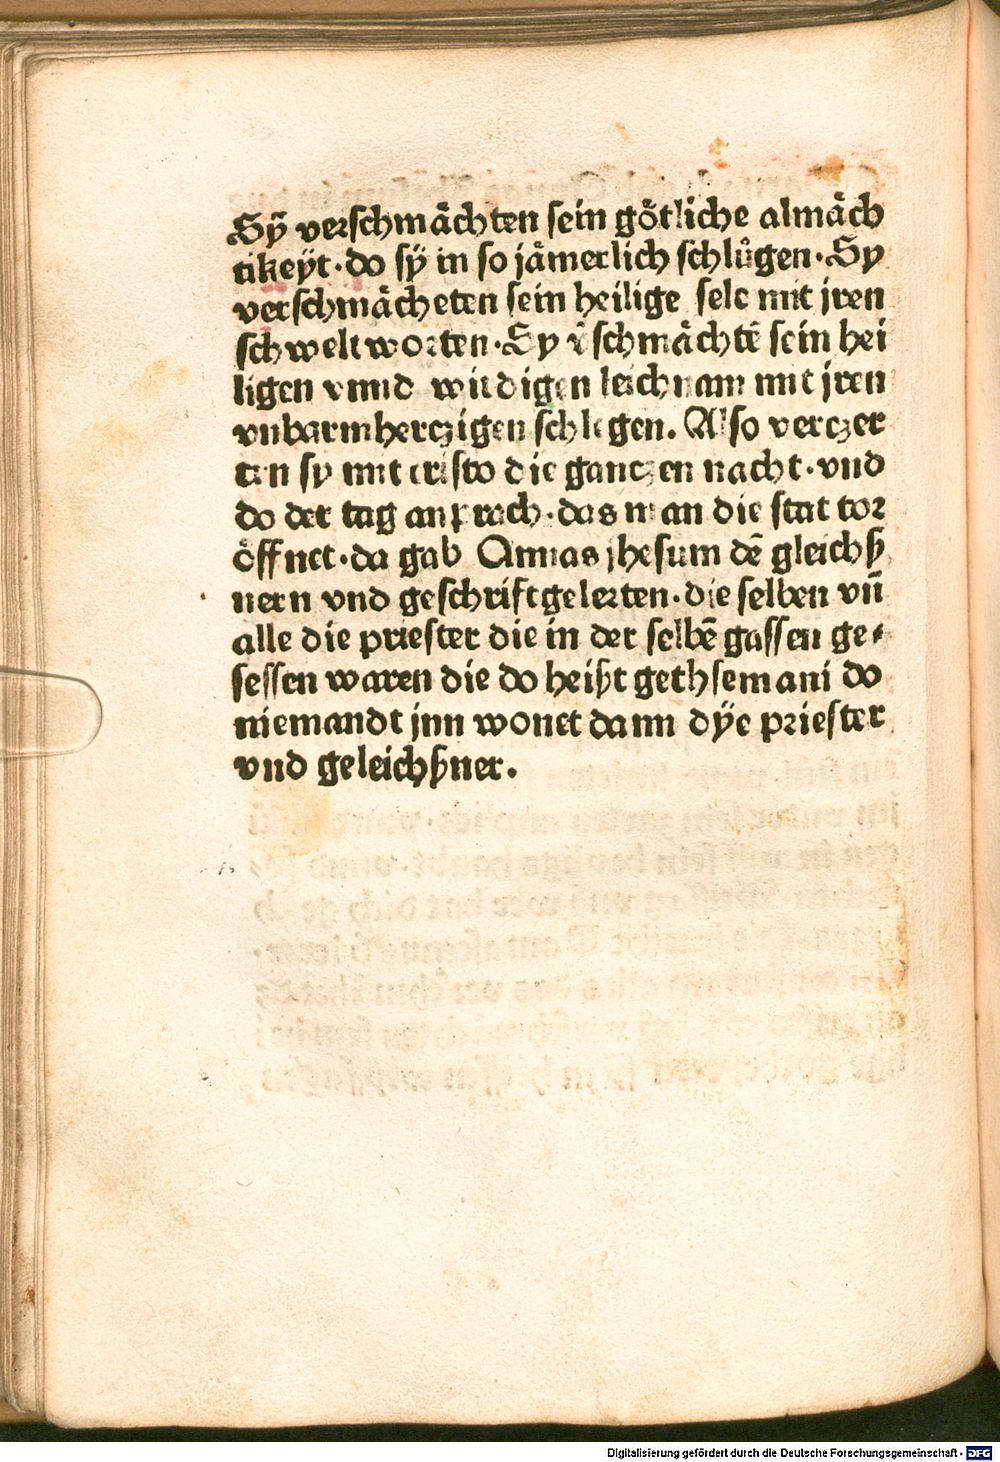 Sÿ verschmächten sein götliche almäch
tikeyt·do sÿ in so jämerlich schlůgen·Sy
verschmächeten sein heilige sele mit jren
schweltworten·Sy v̄schmächtē sein hei
ligen vnnd wirdigen leichnam mit jren
vnbarmherczigen schlegen. Also verczer
ten sy mit cristo die ganczen nacht·vnd
do der tag anprach·das man die stat tor
öffnet·da gab Annas jhesum dē gleichß
nern vnd geschriftgelerten·die selben vn̄
alle die priester die in der selbē gassen ge⸗
sessen waren die do heißt gethsemani do
niemandt jnn wonet dann dÿe priester
vnd geleichßner.
Digitalisierung gefördert durch die Deutsche Forschungsgemeinschaft - DFG